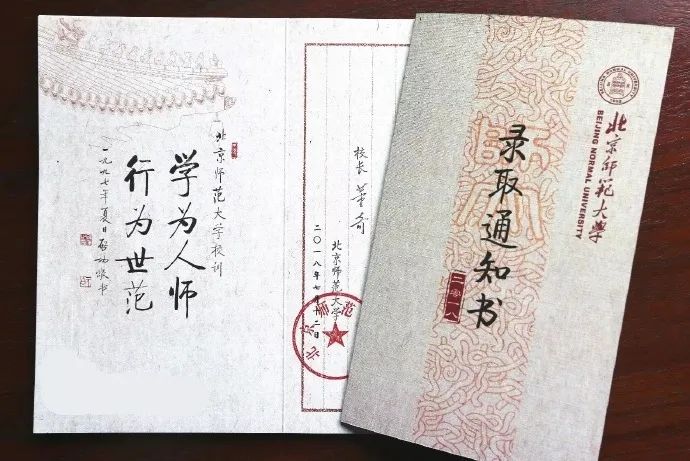 北京师范大学校训
学为人师
行为世范
一九九七年夏日启功敬书
校长 董奇
北京师范大学
二〇一八年七月十二日
北京师范
BEIJING NORMAL UNIVERSITY
1902
北京师范大学
BEIJING NORMAL UNIVERSITY
录取通知书
二零一八